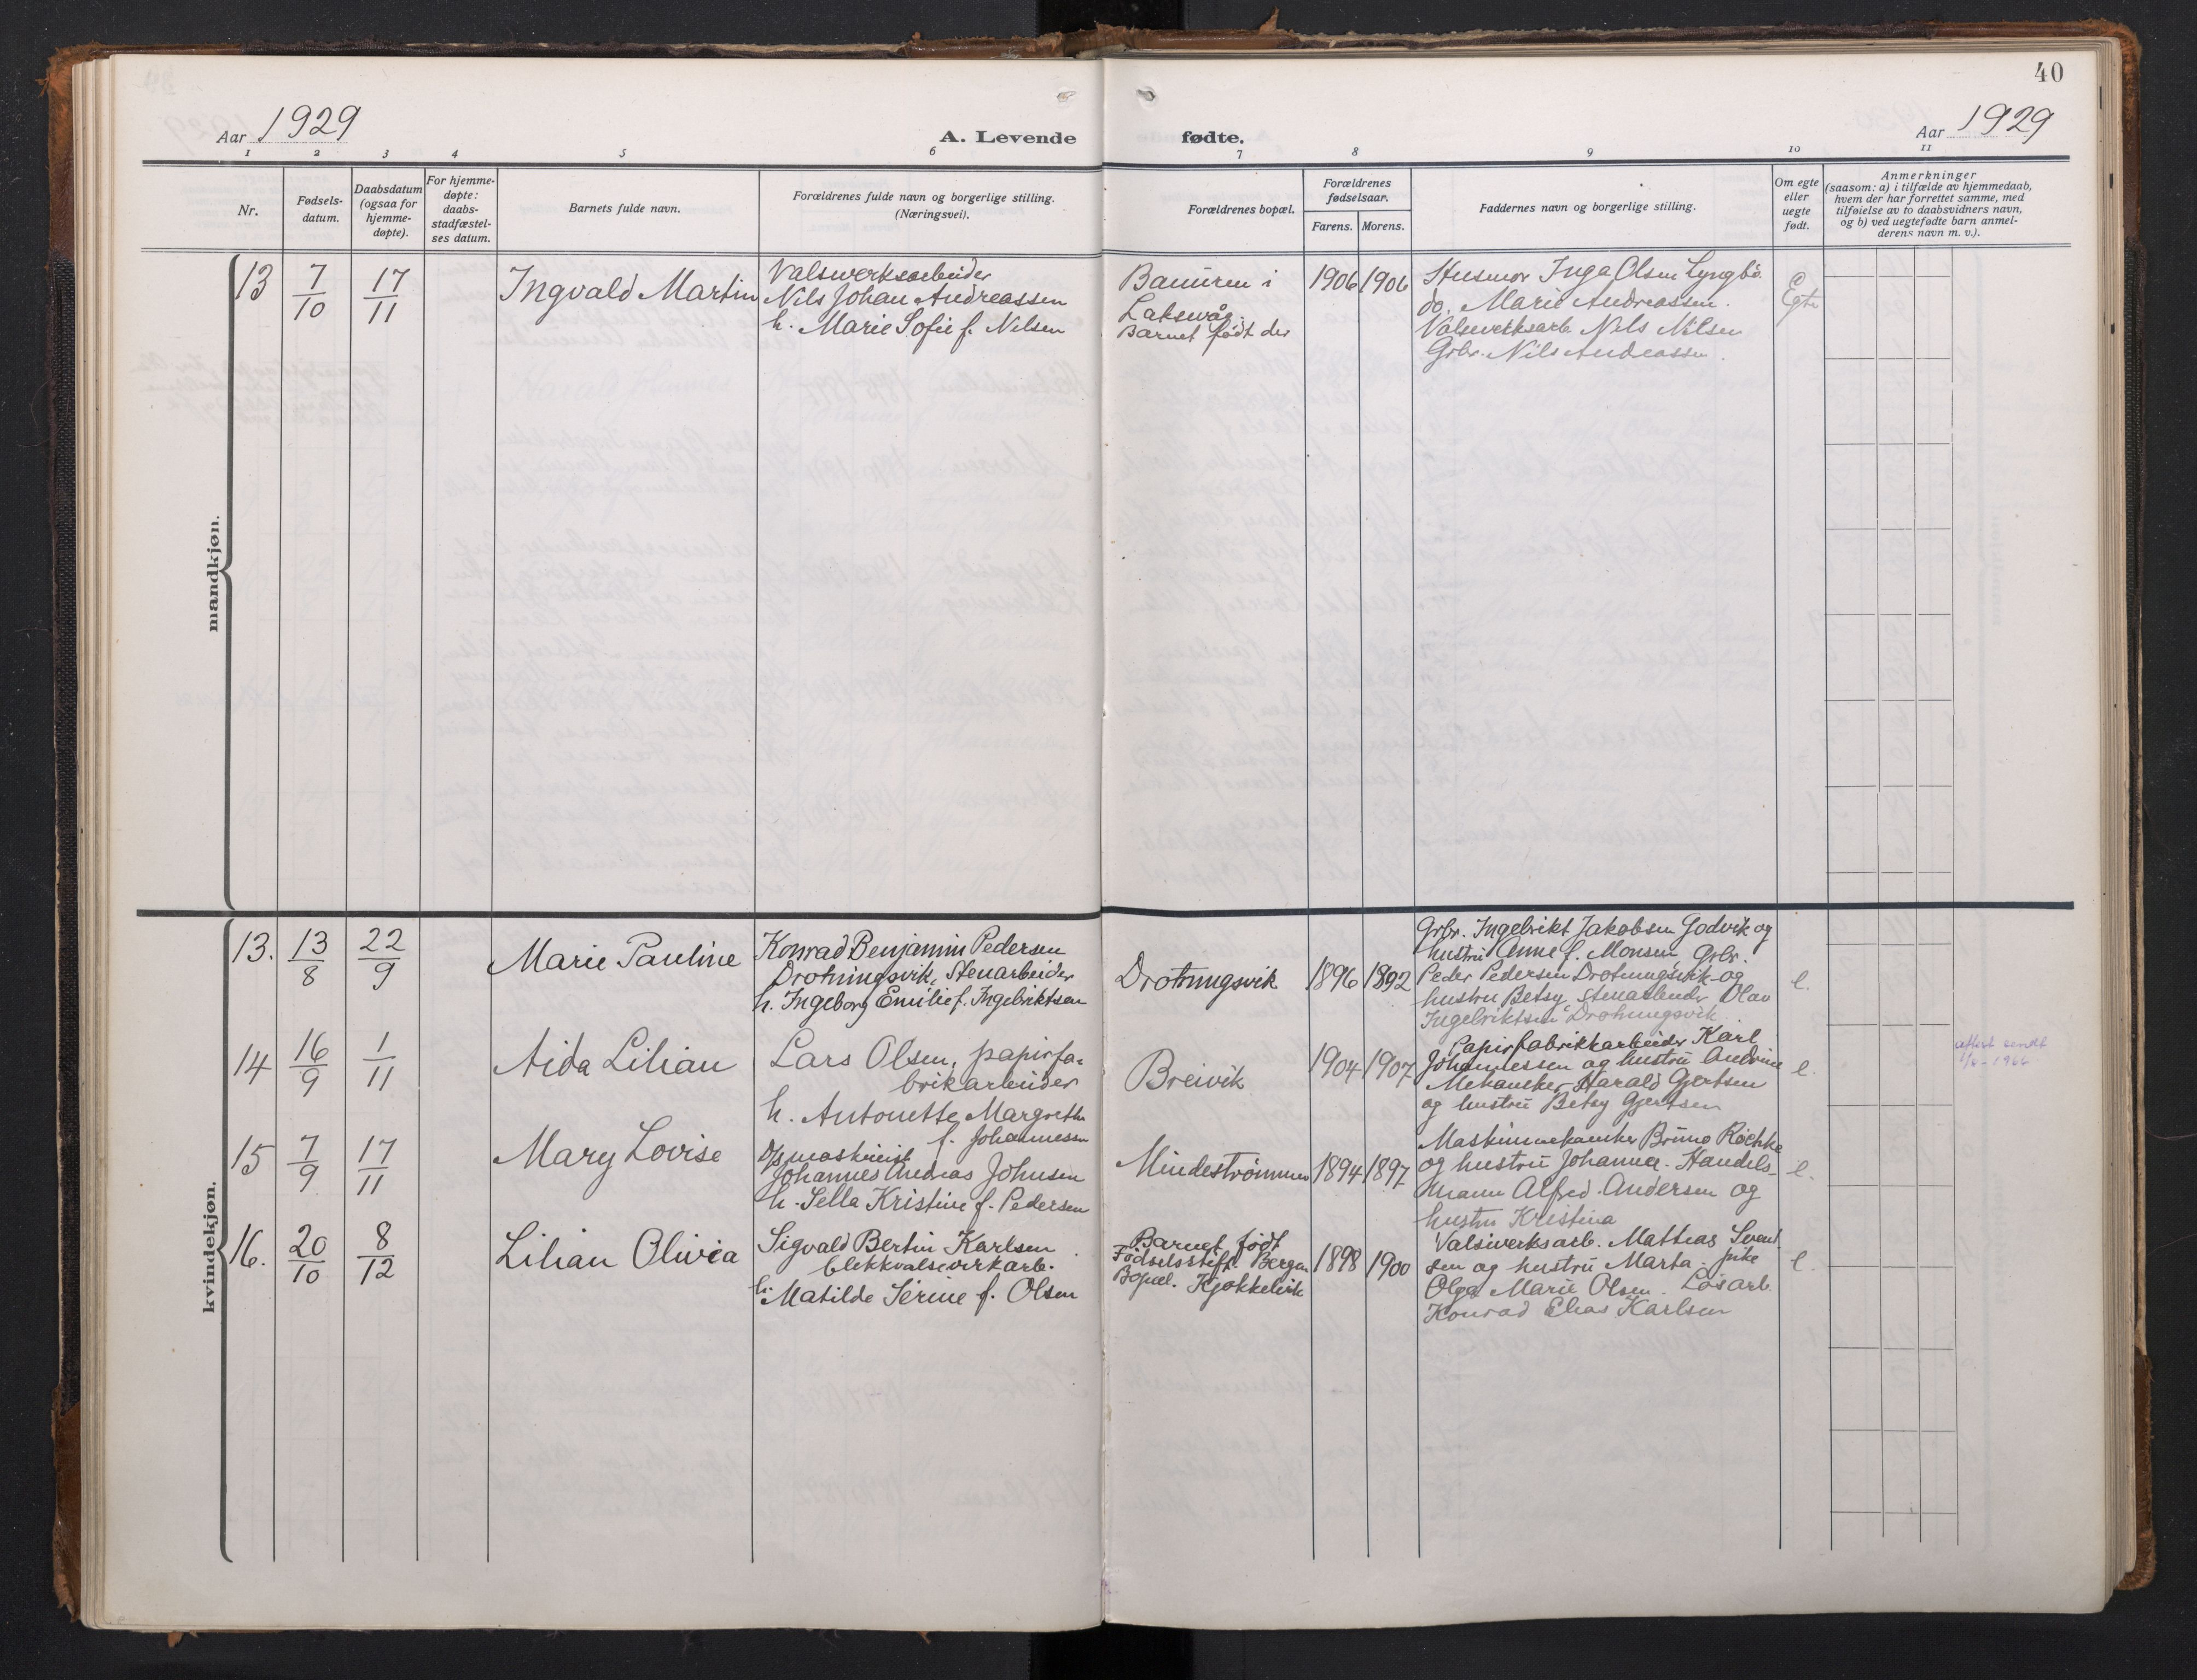 40
Aar 1929
A. Levende fødte.
Aar 1929
1 2 3 4 5 6 7 8 9 10 11
Nr.
Fødsels-
datum.
Daabsdatum
(ogsaa for
hjemme-
døpte).
For hjemme-
døpte:
daabs-
stadfæstel-
ses datum.
Barnets fulde navn.
Forældrenes fulde navn og borgerlige stilling.
(Næringsvei).
Forældrenes bopæl.
Forældrenes
fødselsaar.
Farens. Morens.
Faddernes navn og borgerlige stilling.
Om egte
eller
uegte
født.
Anmerkninger
(saasom: a) i tilfælde av hjemmedaab,
hvem der har forrettet samme, med
tilføielse av to daabsvidners navn,
og b) ved uegtefødte barn anmel-
derens navn m. v.).
mandkjøn.
13
7/10
17/11
Ingvald Martin
Valsverksarbeider
Nils Johan Andreassen
h. Marie Sofie f. Nilsen
i
Laksevåg.
Barnet født der
1906 1906
Husmor Inga Olsen Lyngbø.
do. Marie Andreassen.
Valsverksarb. Nils Nilsen
Grbr. Nils Andreassen.
Egte
kvindekjøn.
13.
13/8
22/9
Marie Pauline
Konrad Benjamin Pedersen
Drotningsvik, Stenarbeider
h. Ingeborg Emilie f. Ingebriktsen
Drotningsvik
1896 1892
Grbr. Ingebrikt Jakobsen Godvik og
hustru Anne f. Monsen, Grbr.
Peder Pedersen Drotningsvik og
hustru Betsy, Stenarbeider Olav
Ingebriktsen Drotningsvik
e.
14
16/9
1/11
Aida Lilian
Lars Olsen, papirfa-
brikarbeider
h. Antonette Margrethe
f. Johannessen
Breivik
1904 1907
Papirfabrikkarbeider Karl
Johannessen og hustru Andrine
Mekaniker Harald Gjertsen
og hustru Betsy Gjertsen
e.
attest sendt
1966
15
7/9
17/11
Mary Lovise
D/s maskinist
Johannes Andreas Johnsen
h. Sella Kristine f. Pedersen
Mindestrømmen
1894 1897
Maskinmekaniker Bruno
og hustru Johanna. Handels-
mann Alfred Andersen og
hustru Kristina
e.
16.
20/10
8/12
Lilian Olivia
Sigvald Bertin Karlsen
blekkvalseverkarb.
h. Matilde Serine f. Olsen
Barnet født
Fødselsstift. Bergen
Bopæl. Kjøkkelvik
1898 1900
Valsverksarb. Mattias Svend-
sen og hustru Marta. pike
Olga Marie Olsen. Løsarb.
Konrad Elias Karlsen
e.